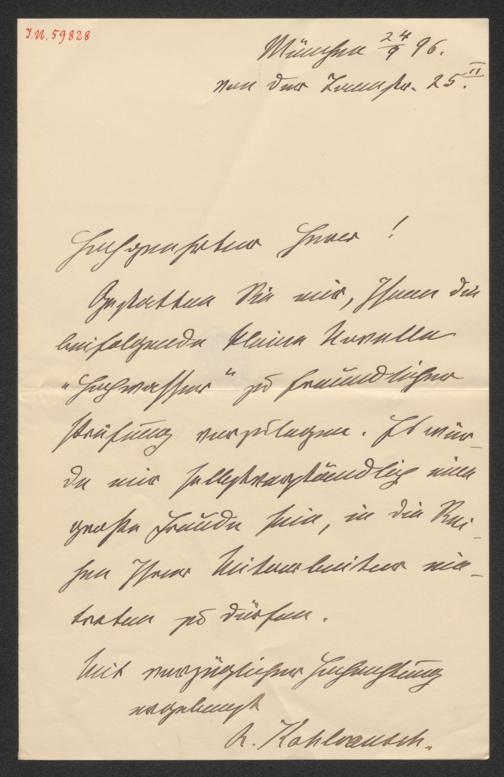 J.N. 59828
München 24/9 96.
von der Tannstr. 25 II.
Hochgeehrter Herr!
Gestatten Sie mir, Ihnen die
beifolgende kleine Novelle
"Hochwasser" zu freundlicher
Prüfung vorzulegen. Es wür-
de mir selbstverständlich eine
große Freude sein, in die Rei-
hen Ihrer Mitarbeiter ein-
treten zu dürfen.
Mit vorzüglicher Hochachtung
ergebenst
R. Kohlrausch.